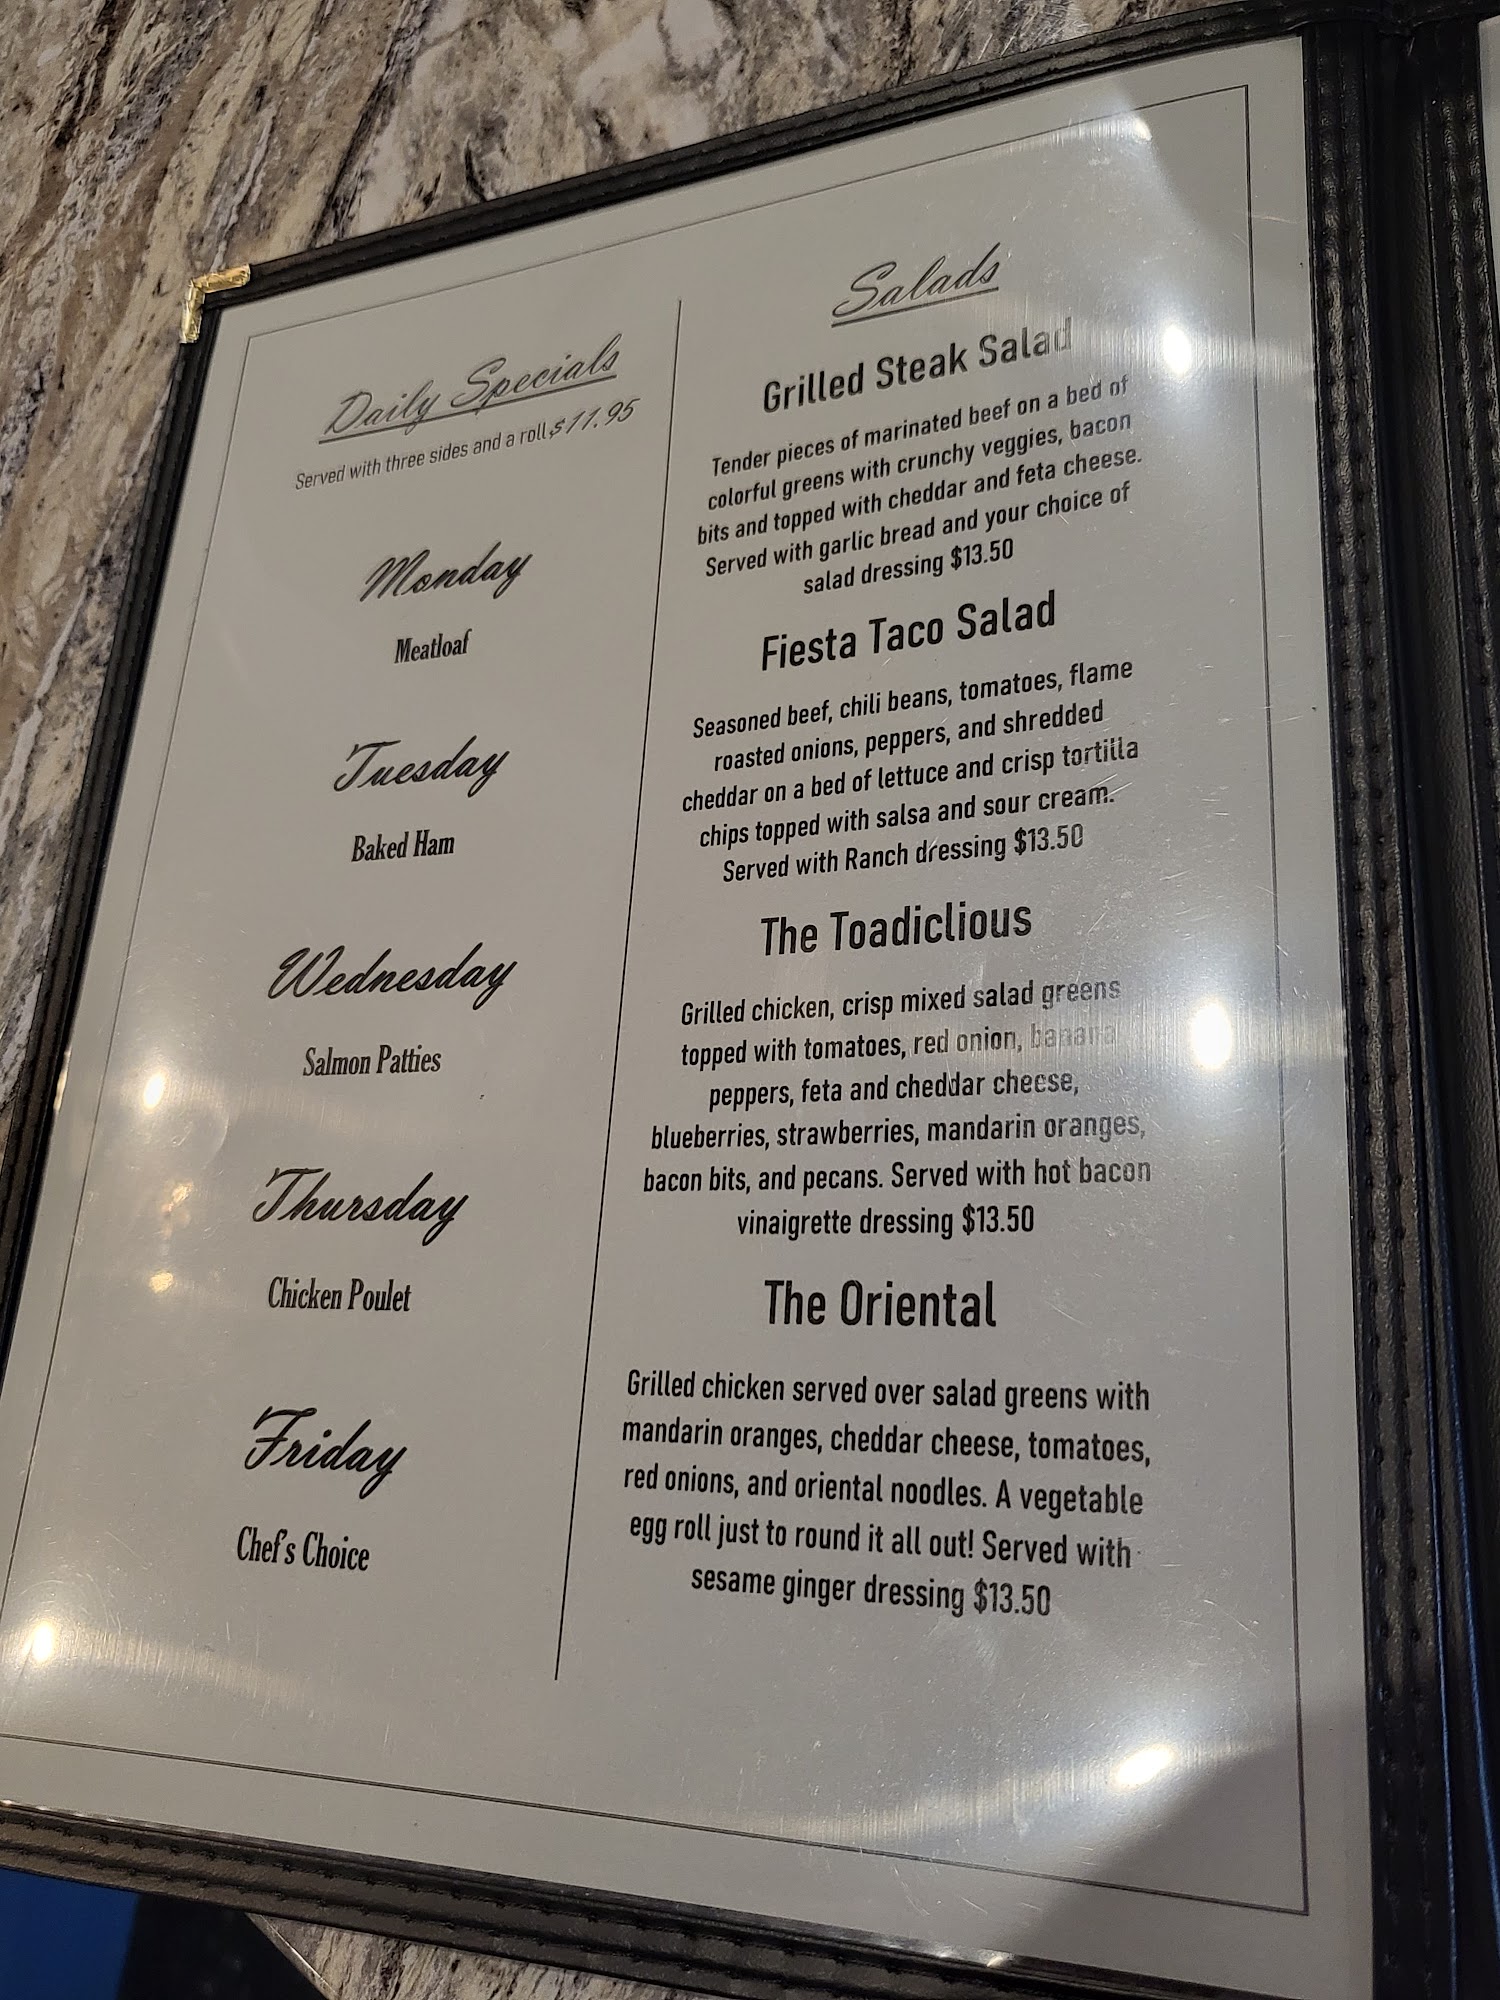 Daily Specials
Served with three sides and a roll $11.95
Monday
Meatloaf
Tuesday
Baked Ham
Wednesday
Salmon Patties
Thursday
Chicken Poulet
Friday
Chef's Choice
Salads
Grilled Steak Salad
Tender pieces of marinated beef on a bed of
colorful greens with crunchy veggies, bacon
bits and topped with cheddar and feta cheese.
Served with garlic bread and your choice of
salad dressing $13.50
Fiesta Taco Salad
Seasoned beef, chili beans, tomatoes, flame
roasted onions, peppers, and shredded
cheddar on a bed of lettuce and crisp tortilla
chips topped with salsa and sour cream.
Served with Ranch dressing $13.50
The Toadiclious
Grilled chicken, crisp mixed salad greens
topped with tomatoes, red onion, banana
peppers, feta and cheddar cheese,
blueberries, strawberries, mandarin oranges,
bacon bits, and pecans. Served with hot bacon
vinaigrette dressing $13.50
The Oriental
Grilled chicken served over salad greens with
mandarin oranges, cheddar cheese, tomatoes,
red onions, and oriental noodles. A vegetable
egg roll just to round it all out! Served with
sesame ginger dressing $13.50